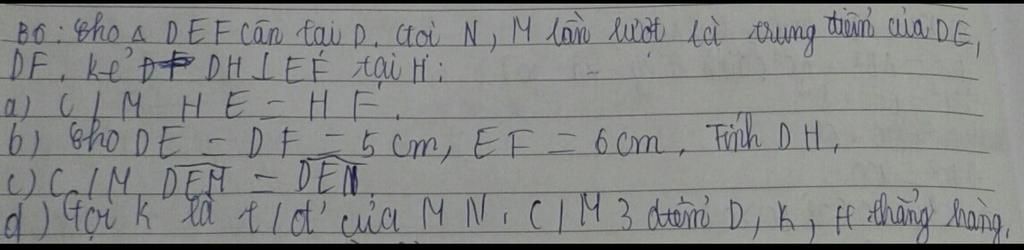 B6: Cho Δ DEF cân tại D. Gọi N, M lần lượt là trung điểm của DE,
DF. Kẻ DH ⊥ EF tại H:
a) C/M HE = HF.
b) Cho DE = DF = 5 cm, EF = 6 cm. Tính DH.
c) C/M DEM = DEN.
d) Gọi K là t/đ' của MN. C/M 3 điểm D, K, H thẳng hàng.